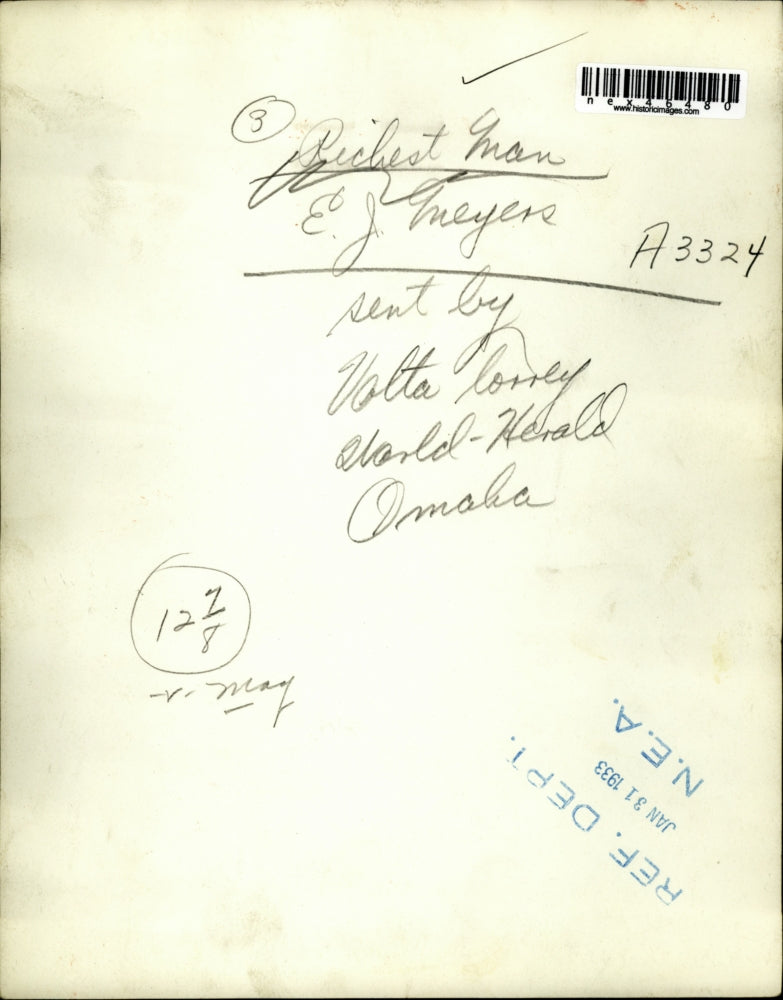 nex46480
www.historicimages.com
3
Richest Man
E. J. Meyers
A3324
sent by
Volta Torrey
World-Herald
Omaha
12 7/8
REF. DEPT.
JAN 31 1933
N.E.A.